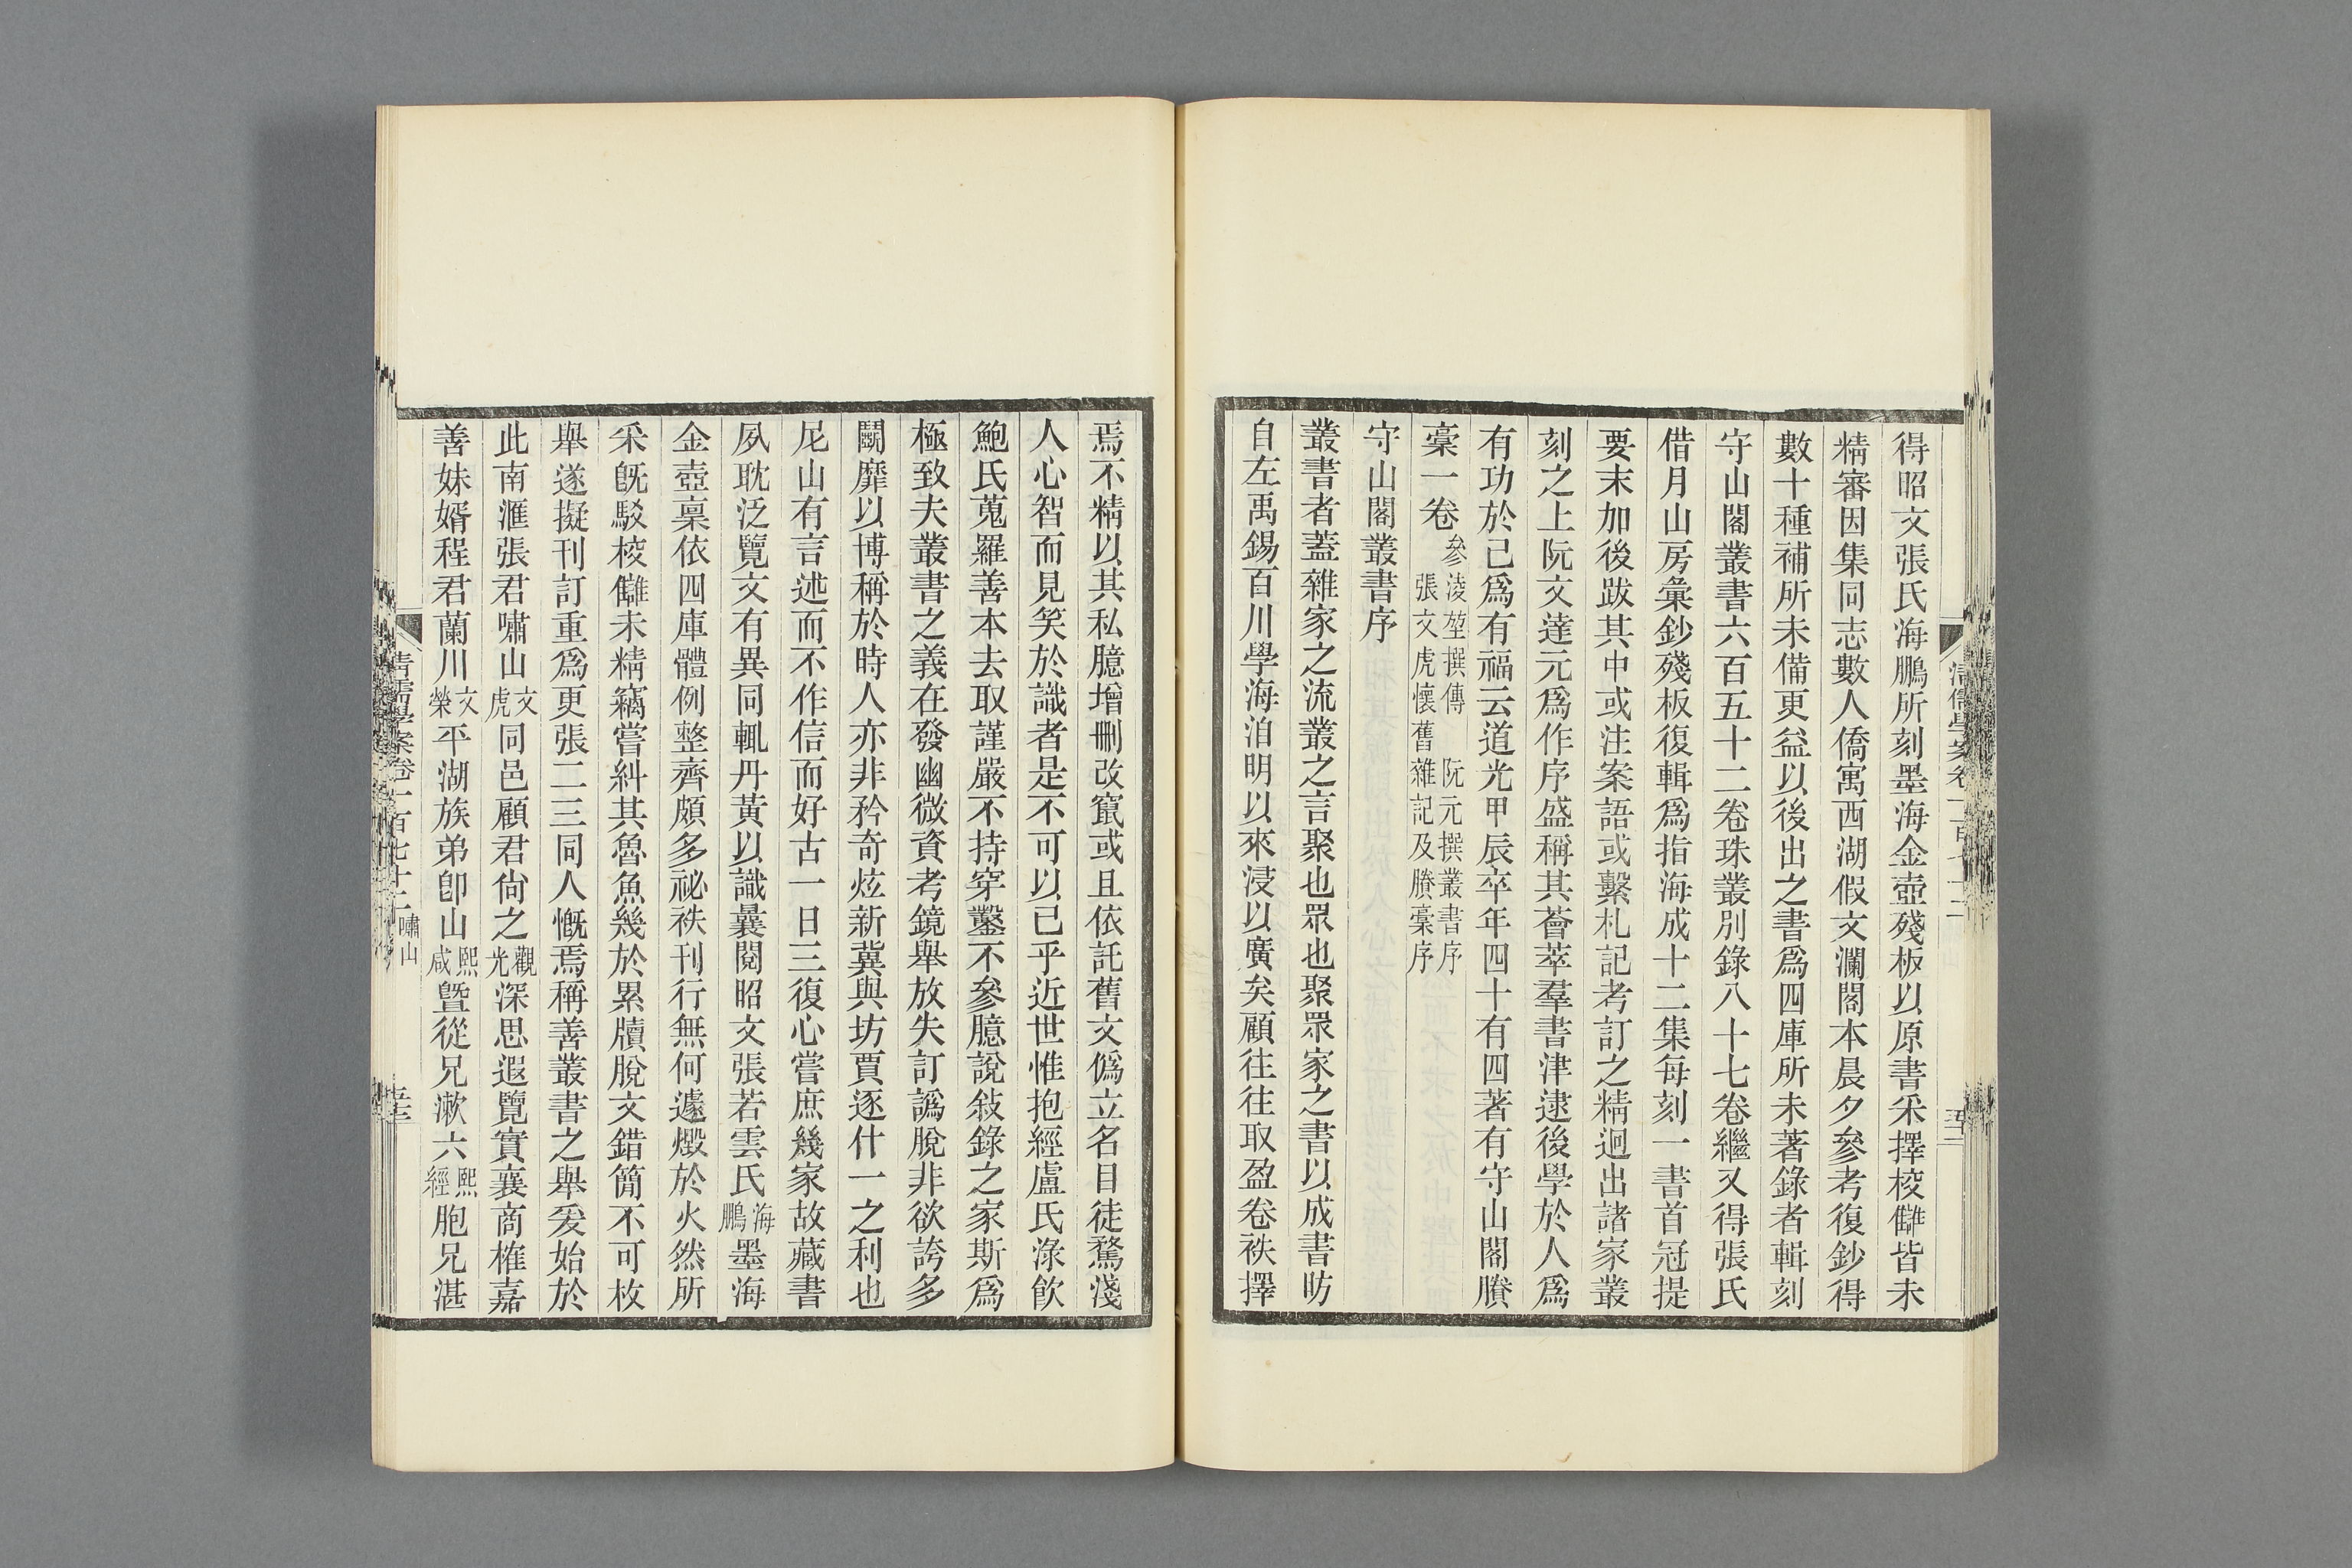 得昭文張氏海鵬所刻墨海金壺殘板以原書采擇校讎皆未
精審因集同志數人僑寓西湖假文瀾閣本晨夕參考復鈔得
數十種補所未備更益以後出之書爲四庫所未著錄者輯刻
守山閣叢書六百五十二卷珠叢別錄八十七卷繼又得張氏
借月山房彙鈔殘板復輯爲指海成十二集每刻一書首冠提
要末加後跋其中或注案語或繫札記考訂之精迥出諸家叢
刻之上阮文達元爲作序盛稱其薈萃羣書津逮後學於人爲
有功於己爲有福云道光甲辰卒年四十有四著有守山閣賸
稾一卷參淩堃撰傳 阮元撰叢書序 張文虎懷舊雜記及賸稾序
守山閣叢書序
叢書者蓋雜家之流叢之言聚也眾也聚眾家之書以成書昉
自左禹錫百川學海洎明以來浸以廣矣顧往往取盈卷袟擇
焉不精以其私臆增刪改竄或且依託舊文僞立名目徒騖淺
人心智而見笑於識者是不可以已乎近世惟抱經盧氏淥飮
鮑氏蒐羅善本去取謹嚴不持穿鑿不參臆說敍錄之家斯爲
極致夫叢書之義在發幽微資考鏡舉放失訂譌脫非欲誇多
鬭靡以博稱於時人亦非矜奇炫新冀與坊賈逐什一之利也
尼山有言述而不作信而好古一日三復心嘗庶幾家故藏書
夙耽泛覽文有異同輒丹黃以識曩閱昭文張若雲氏海鵬墨海
金壺稟依四庫體例整齊頗多祕袟刊行無何遽燬於火然所
采旣駁校讎未精竊嘗糾其魯魚幾於累牘脫文錯簡不可枚
舉遂擬刊訂重爲更張二三同人慨焉稱善叢書之舉爰始於
此南滙張君嘯山文虎同邑顧君尙之觀光深思遐覽實襄商榷嘉
善妹婿程君蘭川文榮平湖族弟卽山熙咸曁從兄漱六熙經胞兄湛
清儒學案卷一百七十二 嘯山